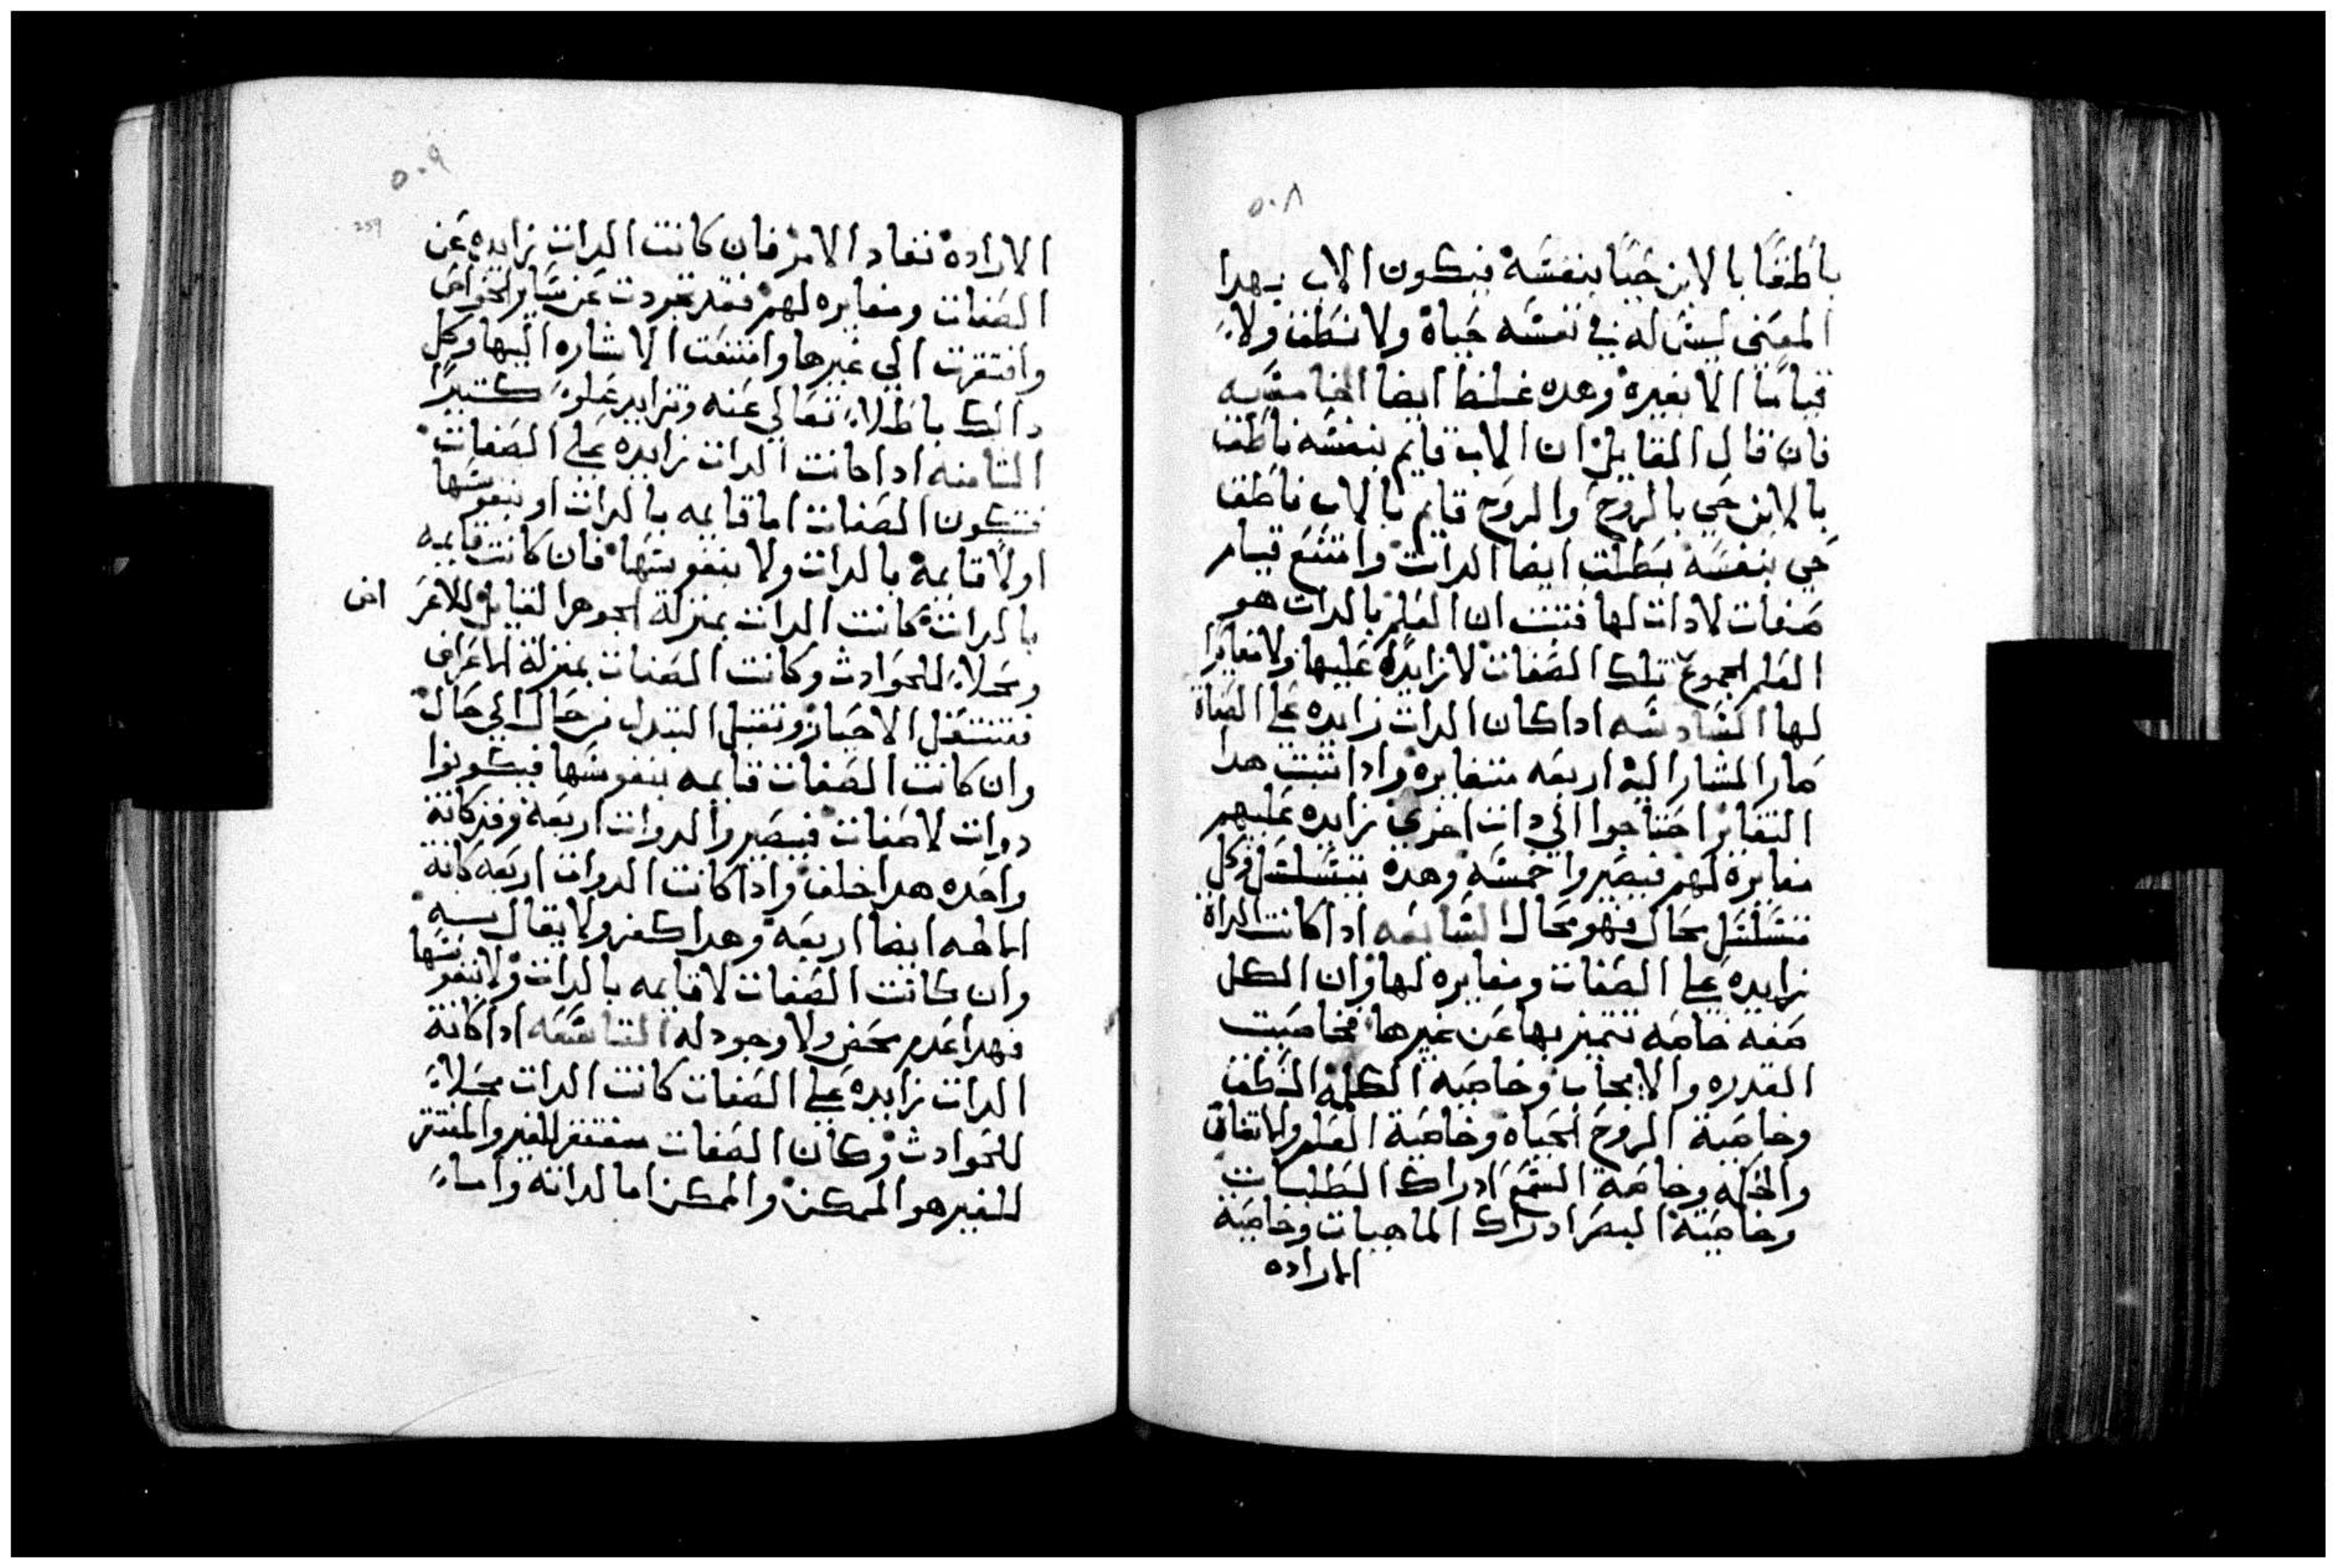 ٥٠٨
ناطقًا بالابن حيًا بنفسه فيكون الاب بهدا
المعنى ليس له في نفسه حياة ولا نطق ولا
قيامًا الا بغيره وهده غلط ايضا الخامسه
فان قال القايل ان الاب قايم بنفسه ناطق
بالابن حي بالروح والروح قايم بالاب ناطق
حي بنفسه بطلت ايضا الدات وامتنع قيام
صفات لا دات لها فتبت ان العلم بالدات هو
العلم بجموع تلك الصفات لا زايدة عليها ولا مغايرا
لها السادسه اداكان الدات زايده على الصفاة
صار المشار اليه اربعه متغايره وادا تبت هدا
التغاير احتاجوا الي دات اخري زايده عليهم
مغايرة لهم فيصيروا خمسه وهده يتسلسل وكل
متسلسل محال فهو محال السابعه ادا كانت الداة
زايده على الصفات ومغايره لها وان الكل
صفه خاصه تتميز بها عن غيرها فخاصيت
القدره والايجاب وخاصيه الكلمه النطق
وخاصية الروح الحياه وخاصية العلم والاتفاق
والحكمه وخاصة السمع ادراك الطلبات
وخاصية البصر ادراك الماهيات وخاصية
الاراده
٥٠٩
259
الارادة نفاد الامر فان كانت الدات زايده عن
الصفات ومغايره لهم فقد تجردت عن ساير الخواص
وافتقرت الي غيرها وامتنعت الاشاره اليها وكل
دالك باطلا تعالي عنه وتزايد علوً كتيرًا
التامنه اداكانت الدات زايده علي الصفات
فتكون الصفات اما قايمه بالدات او بنفوسها
اولا قايمة بالدات ولا بنفوسها فان كانت قايمه
بالدات كانت الدات بمنزلة الجوهر القابل للاعراض
ومحلاً للحوادث وكانت الصفات بمنزلة الاعراض
فتنتقل الاحياز وتقبل التبدل من حال الي حال
وان كانت الصفات قايمه بنفوسها فيكونوا
دوات لا صفات فيصيروا الدوات اربعة وقد كانة
واحده هدا خلف وادا كانت الدوات اربعه كانة
الالهه ايضا اربعة وهدا كفر ولا يقال به
وان كانت الصفات لا قايمه بالدات ولا بنفوسها
فهدا عدم محض ولا وجود له التاسعه اداكانة
الدات زايده علي الصفات كانت الدات محلاً
للحوادث وكان الصفات مفتقر للغير والمفتقر
للغير هو الممكن والممكن اما لداته واما